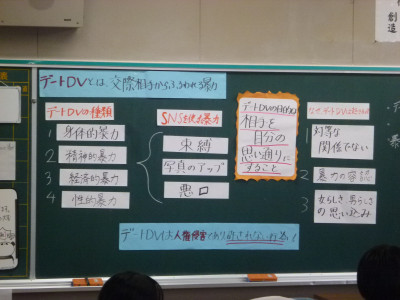 創造
デートDVとは、交際相手からふるわれる暴力
デートDVの種類
1 身体的暴力
2 精神的暴力
3 経済的暴力
4 性的暴力
SNSを使った暴力
束縛
写真のアップ
悪口
デートDVの目的は
相手を
自分の
思い通りに
すること
なぜ、デートDVは
1 対等な
関係でない
2 暴力の容認
3 女らしさ、男らしさ
の思い込み
デートDVは人権侵害であり、許されない行為!